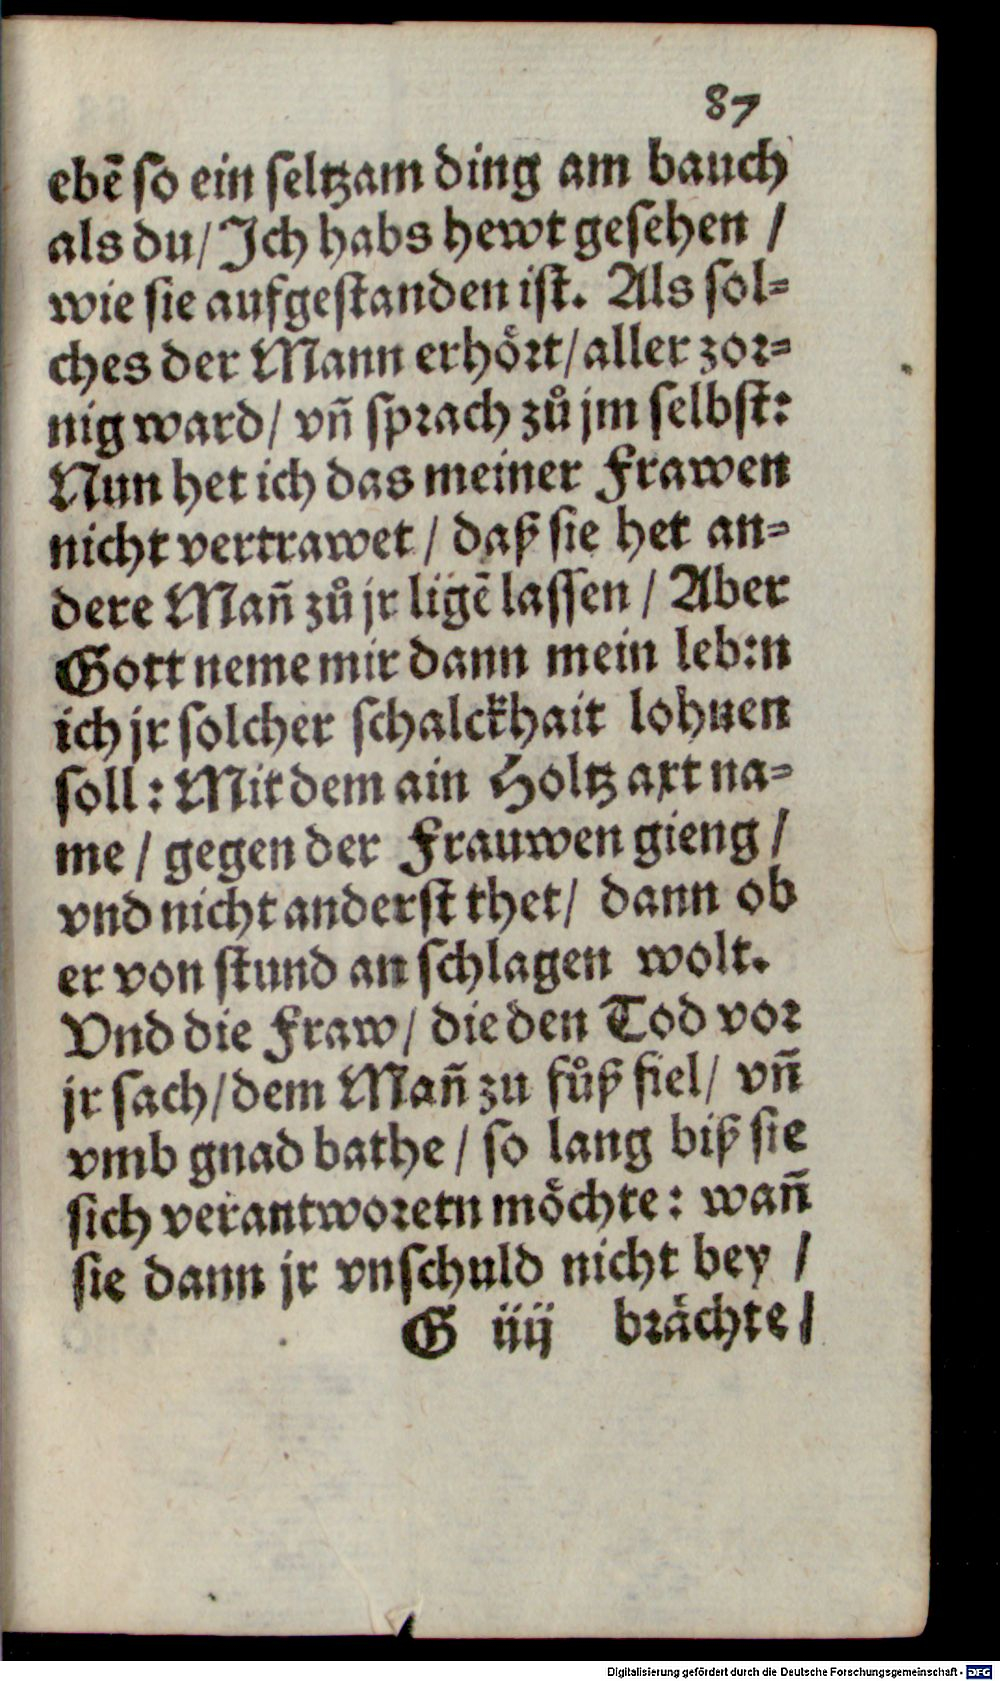 87
ebē so ein seltzam ding am bauch
als du/ Ich habs hewt gesehen /
wie sie aufgestanden ist. Als sol=
ches der Mann erhört/ aller zor=
nig ward/ vñ sprach zů jm selbst:
Nun het ich das meiner Frawen
nicht vertrawet / daß sie het an=
dere Mañ zů jr ligē lassen / Aber
Gott neme mir dann mein leb:n
ich jr solcher schalckhait lohnen
soll : Mit dem ain Holtz axt na=
me / gegen der Frauwen gieng /
vnd nicht anderst thet/ dann ob
er von stund an schlagen wolt.
Vnd die Fraw/ die den Tod vor
jr sach/ dem Mañ zu fůß fiel/ vñ
vmb gnad bathe / so lang biß sie
sich verantworetn möchte: wañ
sie dann jr vnschuld nicht bey /
G iiij brächte/
Digitalisierung gefördert durch die Deutsche Forschungsgemeinschaft - DFG